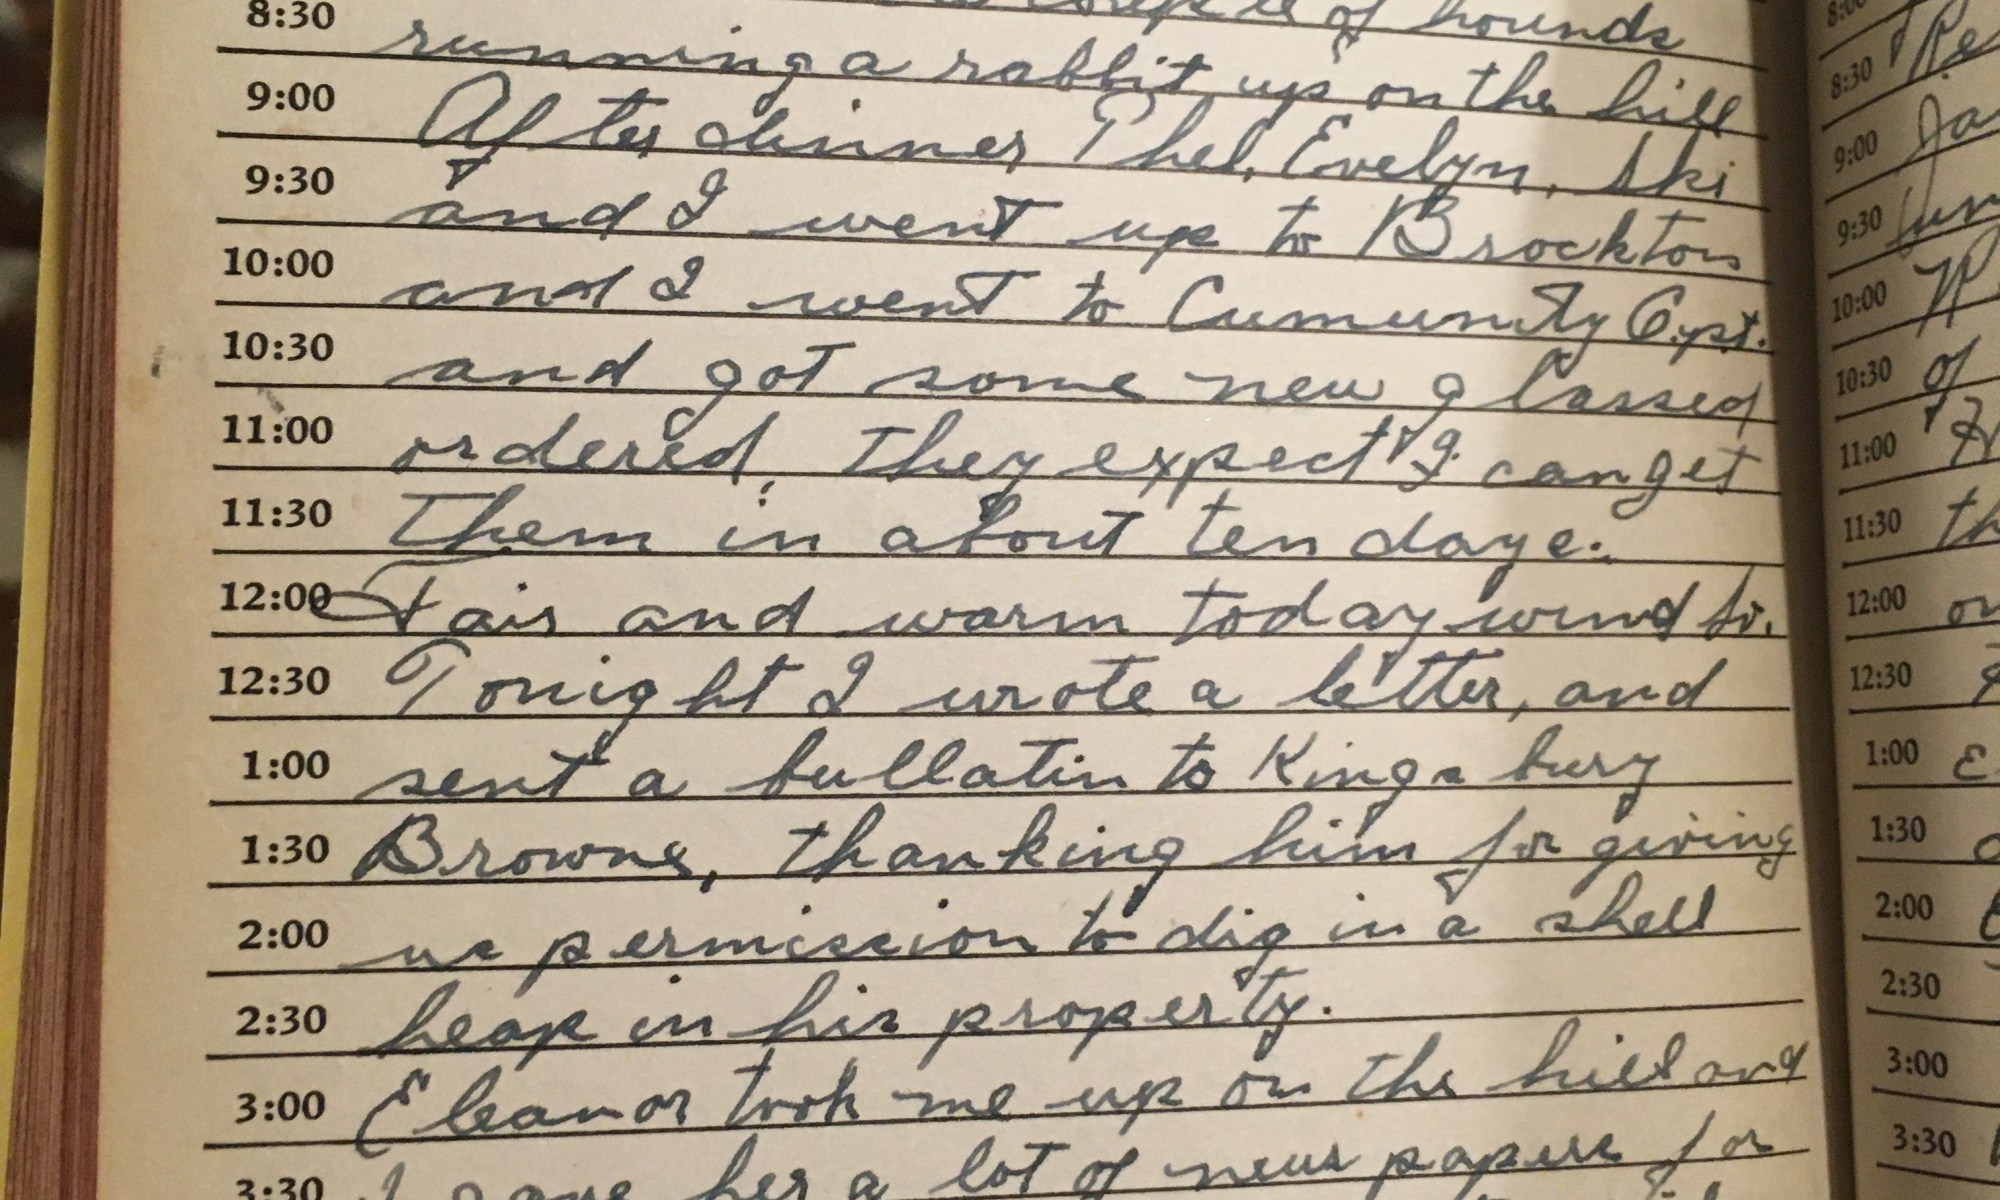 of hounds
8:30 running a rabbit up on the hill
9:00 After dinner Phel, Evelyn, Ski
9:30 and I went up to Brockton
10:00 and I went to Cumunity Opt.
10:30 and got some new glassed
11:00 ordered, they expect I can get
11:30 them in about ten daye.
12:00 Fair and warm today wind So.
12:30 Tonight I wrote a letter, and
1:00 sent a bullatin to Kingsbury
1:30 Browne, thanking him for giving
2:00 us permission to dig in a shell
2:30 heap in his property.
3:00 Eleanor took me up on the hill and
3:30 I gave her a lot of news papers for
8:00
8:30
9:00
9:30
10:00
10:30 of
11:00
11:30
12:00
12:30
1:00
1:30
2:00
2:30
3:00
3:30